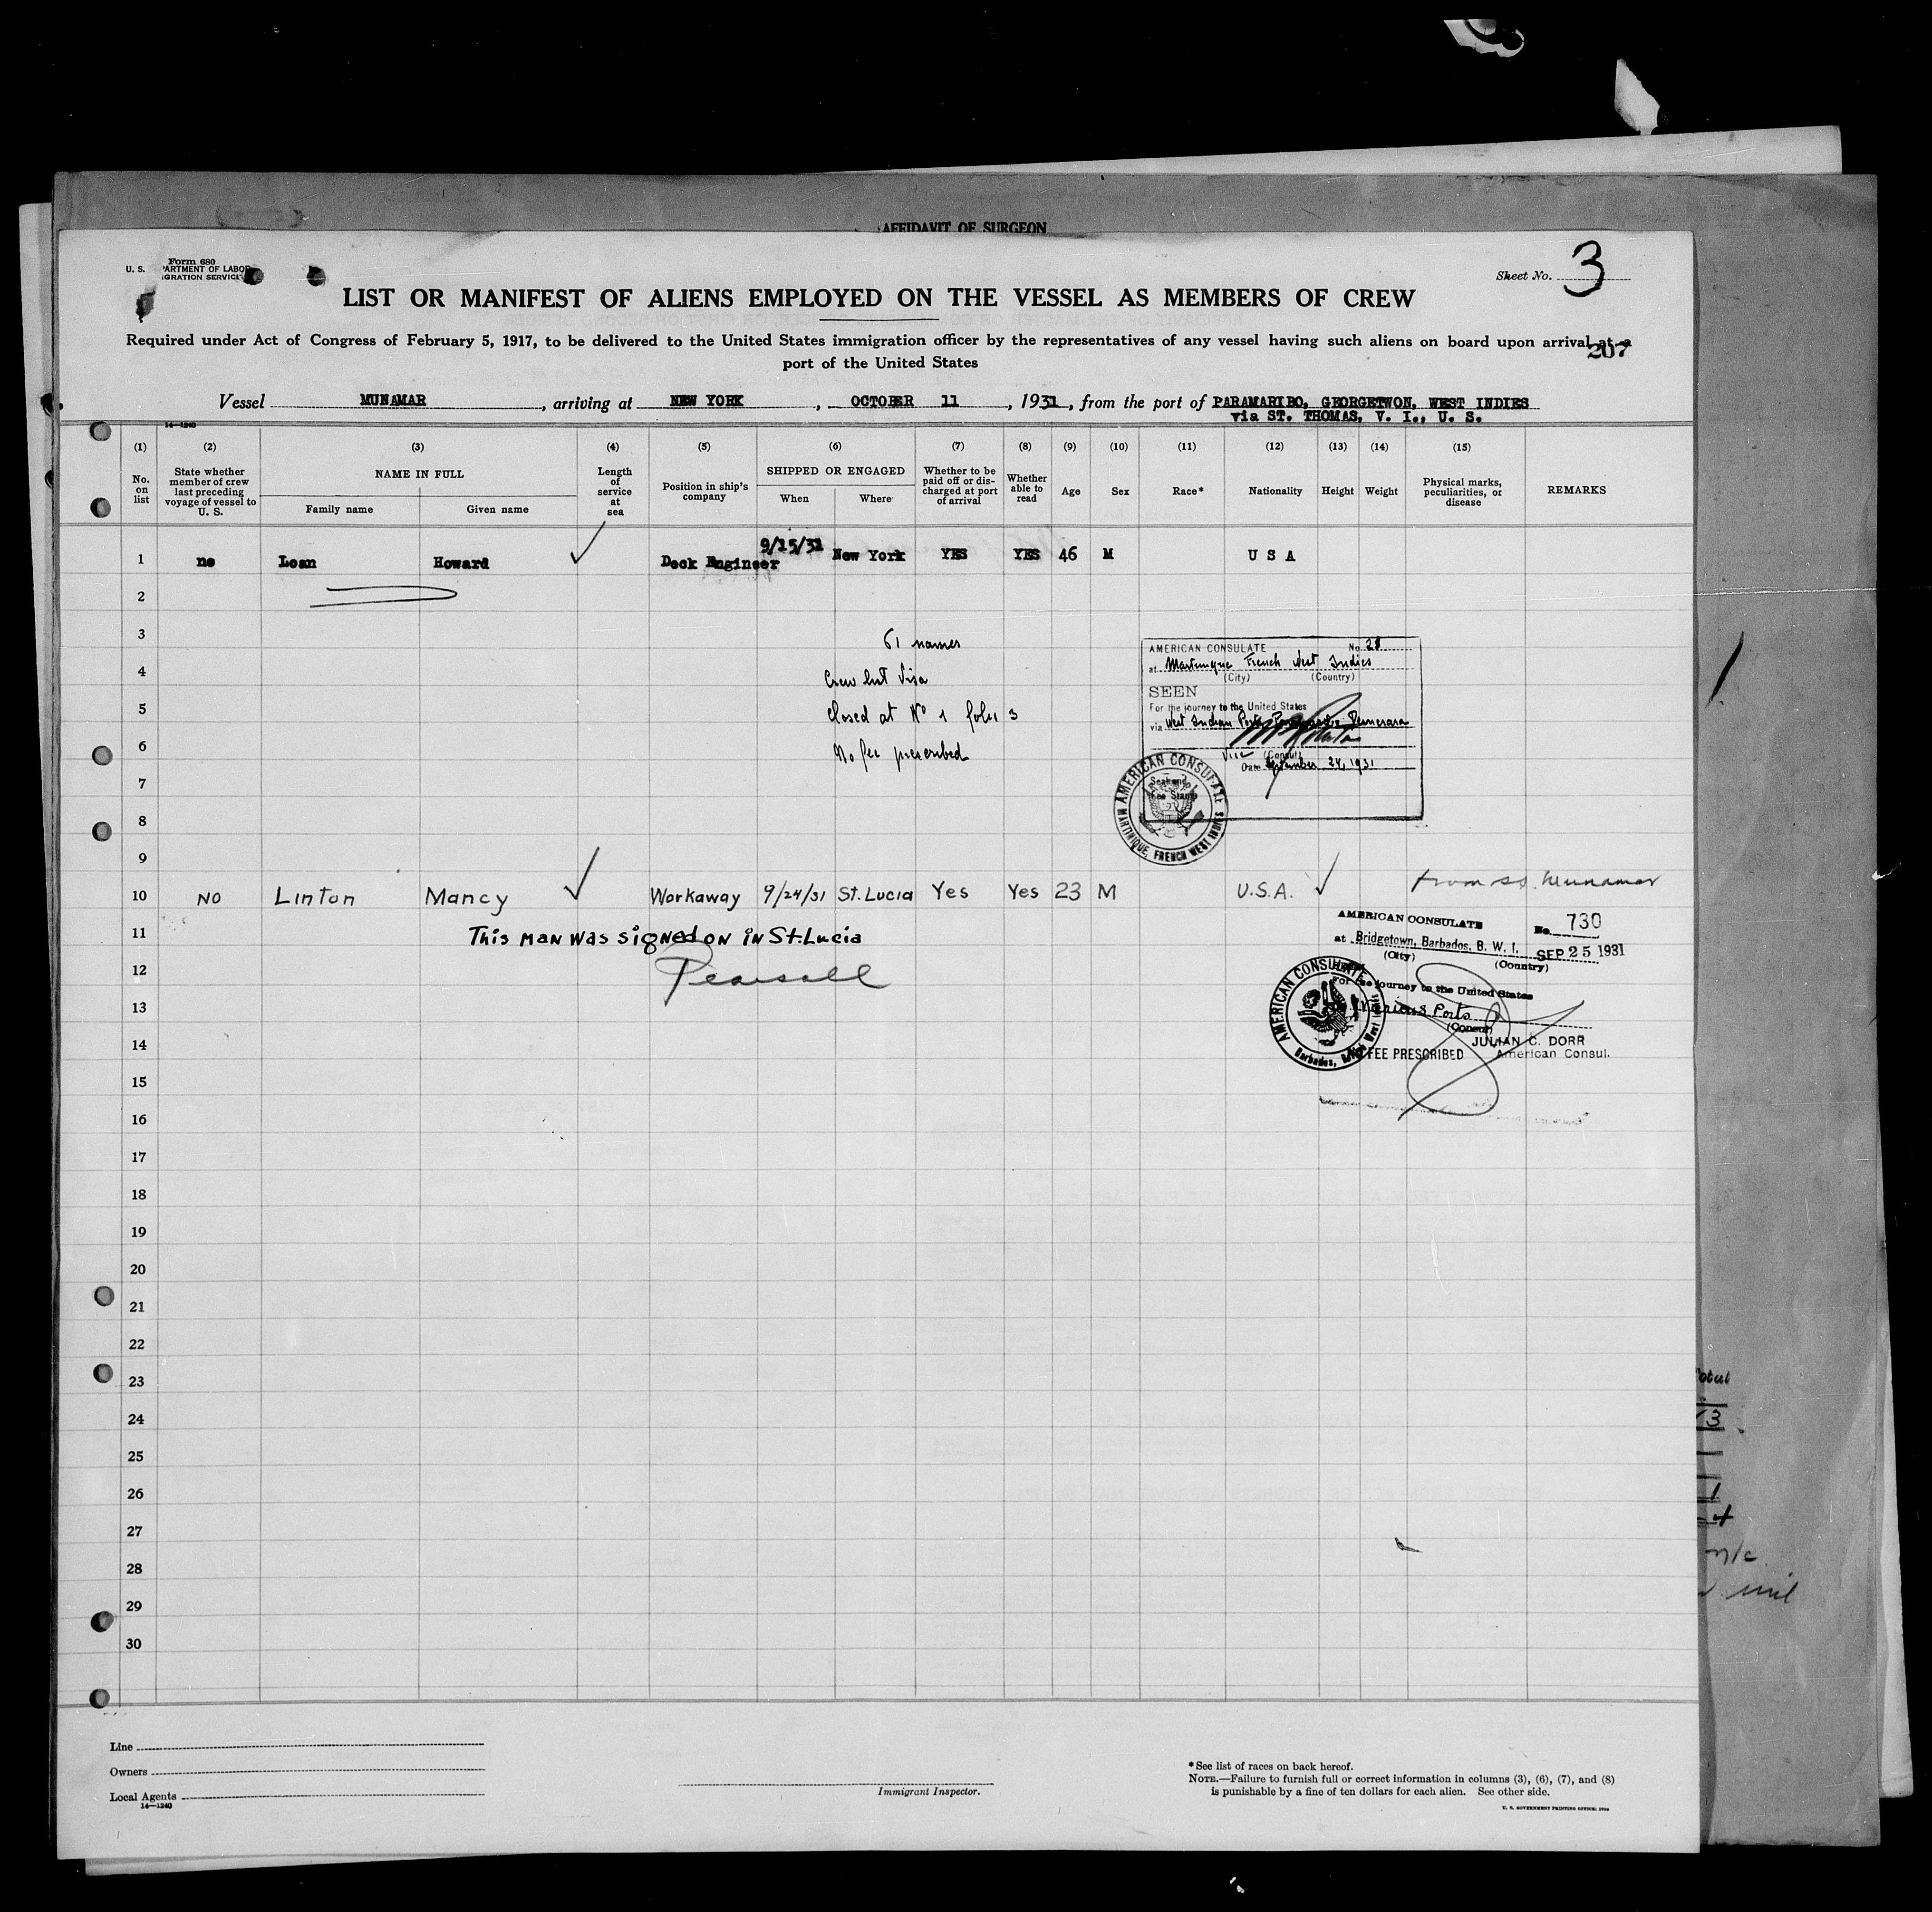 AFFIDAVIT OF SURGEON
Form 680
U. S. PARTMENT OF LABOR
IGRATION SERVICE
Sheet No. 3
LIST OR MANIFEST OF ALIENS EMPLOYED ON THE VESSEL AS MEMBERS OF CREW
Required under Act of Congress of February 5, 1917, to be delivered to the United States immigration officer by the representatives of any vessel having such aliens on board upon arrival at a
port of the United States
207
Vessel MUNAMAR, arriving at NEW YORK, OCTOBER 11, 1931, from the port of PARAMARIBO, GEORGETWON, WEST INDIES
via ST. THOMAS, V. I., U. S.
14—1240
(1) (2) (3) (4) (5) (6) (7) (8) (9) (10) (11) (12) (13) (14) (15)
No. on list
State whether member of crew last preceding voyage of vessel to U. S.
NAME IN FULL
Family name
Given name
Length of service at sea
Position in ship's company
SHIPPED OR ENGAGED
When
Where
Whether to be paid off or discharged at port of arrival
Whether able to read
Age
Sex
Race*
Nationality
Height
Weight
Physical marks, peculiarities, or disease
REMARKS
1 no Loan Howard Deck Engineer 9/15/31 New York YES YES 46 M U S A
2
3
61 names
4
Crew list Visa
5
closed at No 1 folio 3
6
No fee prescribed
AMERICAN CONSULATE No. 28
at Martinique French West Indies
(City) (Country)
SEEN
For the journey to the United States
via West Indian Ports Demerara
Vice (Consul)
Date September 24, 1931
Seal and
Fee Stamp
AMERICAN CONSULATE
MARTINIQUE, FRENCH WEST INDIES
7
8
9
10 NO Linton Mancy Workaway 9/24/31 St. Lucia Yes Yes 23 M U.S.A. from ss. Munamar
11 This man was signed on in St. Lucia
12 Pearsall
AMERICAN CONSULATE No. 730
at Bridgetown, Barbados, B. W. I. SEP 25 1931
(City) (Country)
For the journey to the United States
Various Ports
(Consul)
JULIAN C. DORR
FEE PRESCRIBED American Consul.
AMERICAN CONSULATE
Barbados, British West Indies
13
14
15
16
17
18
19
20
21
22
23
24
25
26
27
28
29
30
13
1
4
nil
Line
Owners
Local Agents
14—1240
Immigrant Inspector.
*See list of races on back hereof.
NOTE.—Failure to furnish full or correct information in columns (3), (6), (7), and (8)
is punishable by a fine of ten dollars for each alien. See other side.
U. S. GOVERNMENT PRINTING OFFICE: